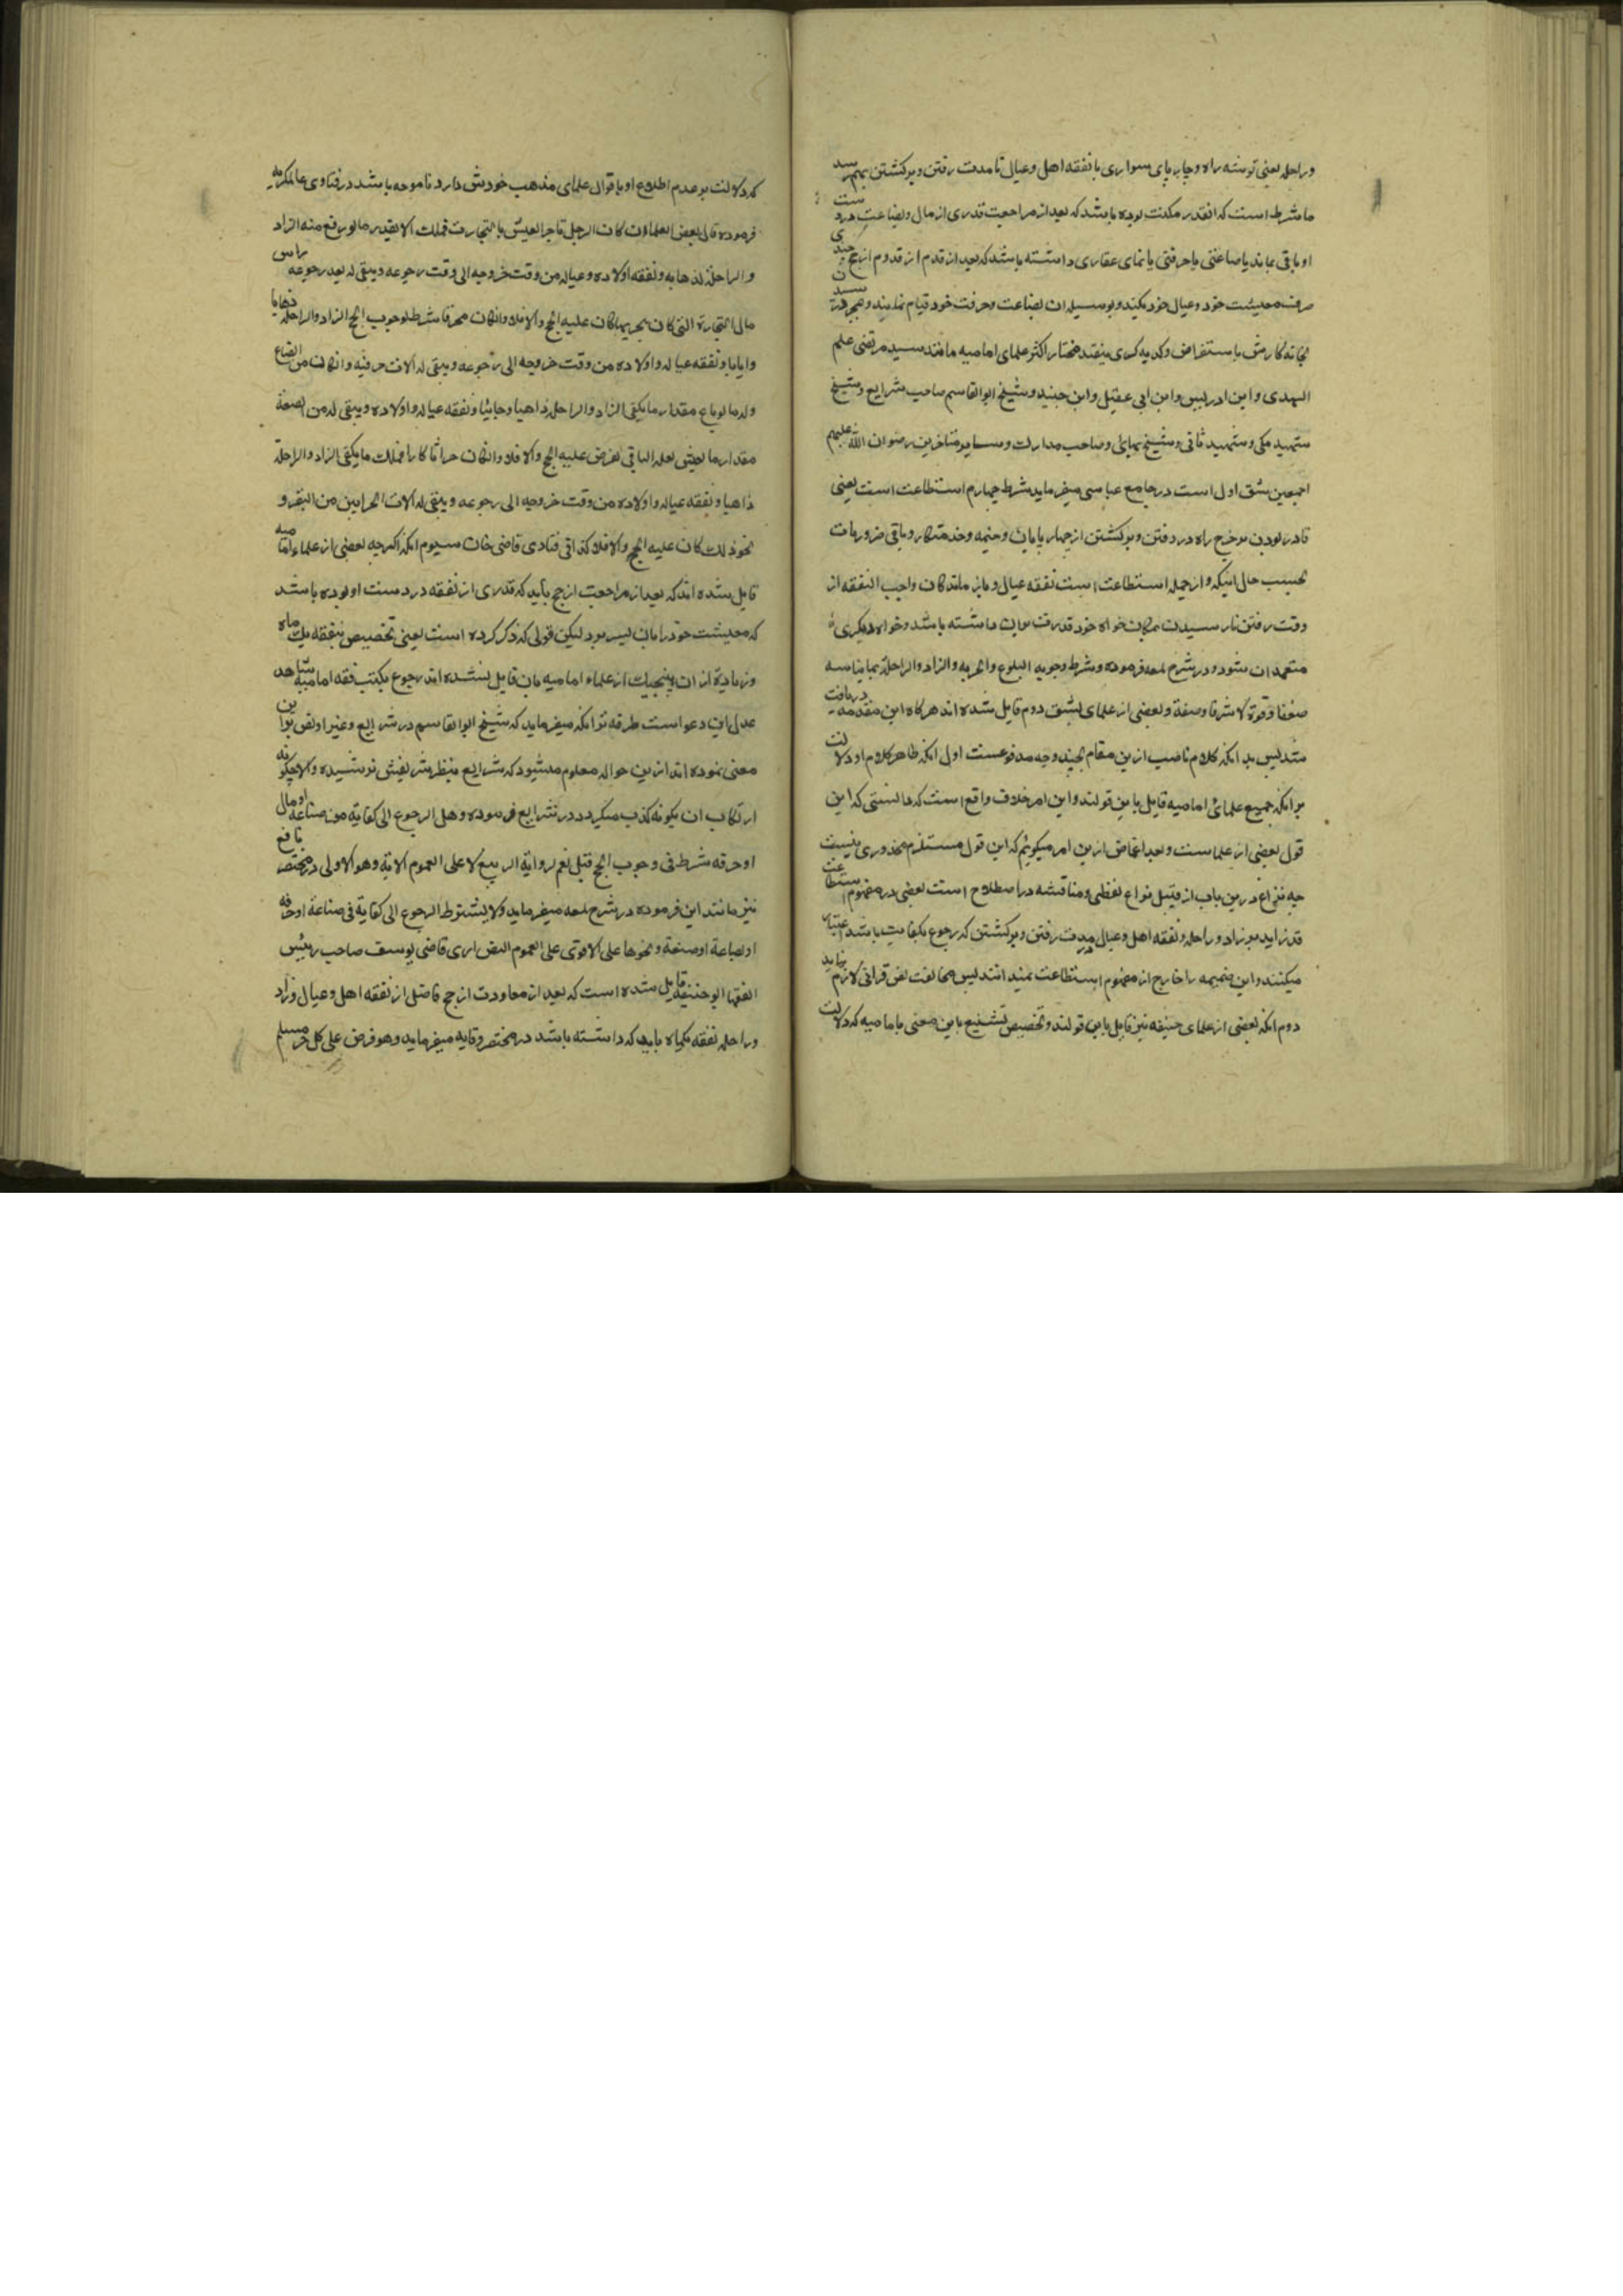 وراحله یعنی توشه راه و چارپای سواری با نفقه اهل و عیال تا مدت رفتن و برکشتن بهم رسد
یا شرط است که انقدر مکنت بوده باشد که بعد از مراجعت قدری از مال و بضاعت در دست
او باقی بماند یا صناعتی یا حرفتی یا نمای عقاری داشته باشد که بعد از قدوم از حج چندی
صرف معیشت خود و عیال خود بکند و بوسیله ان بضاعت و حرفت خود قیام نمایند و بمجرد رسیدن
بخانه کارش باستقراض و کدیه کری نیفتد مختار اکثر علمای امامیه مانند سید مرتضی علم
الهدی و ابن ادریس و ابن ابی عقیل و ابن جنید و شیخ ابوالقاسم صاحب شرایع و شیخ
شهید مکی و شهید ثانی و شیخ بهایی و صاحب مدارک و سایر متاخرین رضوان الله علیهم
اجمعین شق اول است در جامع عباسی میفرماید شرط چهارم استطاعت است یعنی
قادر بودن بر خرج راه در رفتن و برکشتن از چهارپایان و خیمه و خدمتکار و باقی ضروریات
بحسب حال اینکه و از جمله استطاعت است نفقه عیال و باز ماندکان واجب النفقه از
وقت رفتن تا رسیدن بمکان خواه خود قدرت بران داشته باشد و خواه دیکری
متعهد ان شود و در شرح لمعه فرموده و شرط وجوبه البلوغ والحریه والزاد والراحلة بما یناسبه
ضعفا و قوة لا شرفا وضعة و بعضی از علمای بشق دوم قایل شده اند هرکاه این مقدمه دریافت
شد پس بدانکه کلام ناصب ازین مقام بچند وجه مدفوعست اول انکه ظاهر کلام او دلالت
بر انکه جمیع علمائ امامیه قایل باین قولند و این امر خلاف واقع است که دانستی که این
قول بعضی از علماست و بعد اغماض ازین امر میکوئیم که این قول مستلزم محذوری نیست
چه نزاع درین باب از قبیل نزاع لفظی و مناقشه در اصطلاح است بعضی در مفهوم استطاعت
قدر زاید بر زاد و راحله و نفقه اهل و عیال مدت رفتن و برکشتن که رجوع بکفایت باشد اعتبار
میکنند و این ضمیمه را خارج از مفهوم استطاعت نمیدانند پس مخالفت نص قرانی لازم نیاید
دوم انکه بعضی از علمای حنیفه نیز قایل باین قولند و تخصیص تشنیع باین معنی بامامیه که دلالت
که دلالت بر عدم اطلاع او باقوال علمای مذهب خودش دارد ناموجه باشد در فتاوی عالمکریه
فرموده قال بعض العلماء ان کان الرجل تاجرا یعیش بالتجارت فملک الا بقدر ما لو رفع منه الزاد
والراحلة لذهابه و نفقه اولاده و عیاله من وقت خروجه الی وقت رجوعه ویبقی له بعد رجوعه راس
مال التجارة التی کان یتجر بها کان علیه الحج والا فلا وانکان محترفا شرط لوجوب الحج الزاد والراحلة ذهابا
وایابا و نفقه عیاله و اولاده من وقت خروجه الی رجوعه ویبقی له الات حرفته وانکان من الضیاع
وله ما لو باع مقدار ما یکفی الزاد والراحلة ذاهبا وجائیا و نفقه عیاله و اولاده ویبقی له من الضیعة
مقدار ما یعیش بغله الباقی یفرض علیه الحج والا فلا وانکان حراثا کارا فملک ما یکفی الزاد والراحلة
ذاهبا و نفقه عیاله و اولاده من وقت خروجه الی رجوعه ویبقی له الات الحراثین من البقر و
نحو ذلک کان علیه الحج والا فلا کذا فی فتاوی قاضی خان سیوم انکه اکرچه بعضی از علماء امامیه
قایل شده اند که بعد از مراجعت از حج باید که قدری از نفقه در دست او بوده باشد
که معیشت خود را بان بسر برد لیکن قولی که ذکر کرده است یعنی تخصیص بنفقه یک ماه
و زیاده از ان هیچیک از علماء امامیه بان قایل نشده اند رجوع بکتب فقه امامیه شاهد
عدل این دعواست طرفه تر انکه میفرماید که شیخ ابوالقاسم در شرایع و غیر او نص براین
معنی نموده اند ازین حواله معلوم میشود که شرایع بنظر شریفش نرسیده والا چکونه
ارتکاب ان یکونه کذب میکردد در شرایع فرموده و هل الرجوع الی کفایه من صناعة او مال
او حرفه شرط فی وجوب الحج قیل نعم لروایة ابی ربیع لا علی العموم الایة وهو الاولی در مختصر نافع
نیز مانند این فرموده در شرح لمعه میفرماید ولا یشترط الرجوع الی کفایة فی صناعة او حرفه
او بضاعة او ضیعة و نحوها علی الاقوی علی العموم النص اری قاضی یوسف صاحب رئیس
الفقها ابو حنیفه قایل شده است که بعد از معاودت از حج فاضل از نفقه اهل و عیال و زاد
و راحله نفقه یکماه باید که داشته باشد در مختصر وقایه میفرماید وهو فرض علی کل حر مسلم